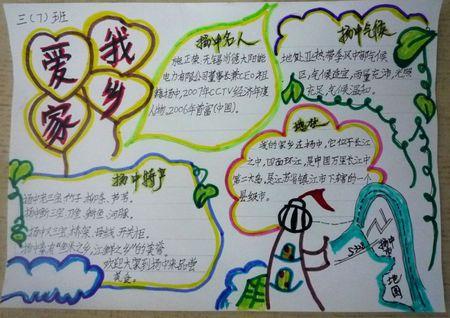 三(7)班
我爱家乡
扬中名人
施正荣，无锡尚德太阳能
电力有限公司董事长兼CEO，祖
籍扬中，2007年CCTV经济年度
人物，2006年首富(中国)。
扬中气候
地处亚热带季风中部气候
区，气候适宜，雨量充沛，光照
充足，气候温和。
地放
我的家乡在扬中，它位于长江
之中，四面环江，是中国万里长江中
第二大岛，是江苏省镇江市下辖的一个
县级市。
扬中特产
扬中老三宝：竹子、柳条、芦苇。
扬中新三宝：刀鱼、鲥鱼、河豚。
扬中大三宝：桥架、母线、开关柜。
扬中素有"鱼米之乡，江鲜之乡"的美誉。
欢迎大家到扬中来品尝
美食。
扬中
地图